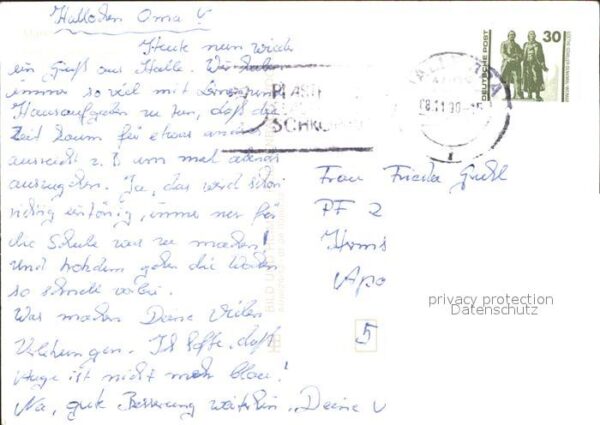 Halloden Oma V
Heute nun wieder
ein Gruß aus Halle. Wir haben
immer so viel mit Lernen und
Hausaufgaben zu tun, daß die
Zeit kaum für etwas anderes
ausreicht z. B. um mal abends
auszugehen. Ja, das wird schon
richtig eintönig, immer nur für
die Schule was zu machen!
Und trotzdem gehen die Wochen
so schnell vorbei.
Was machen Deine vielen
Verletzungen. Ich hoffe, daß
Auge ist nicht mehr blau!
Na, gute Besserung weiterhin „Deine V
DEUTSCHE POST
30
08.11.90
Frau Frieda
PF 2
Apo
5
privacy protection
Datenschutz